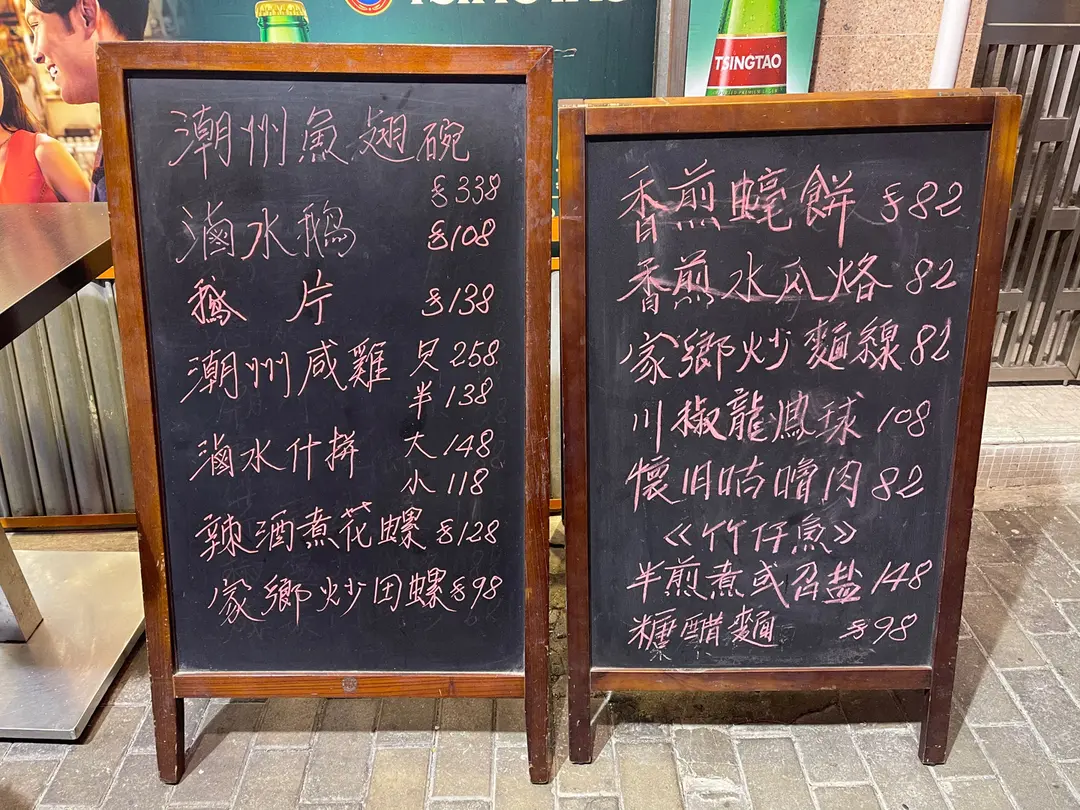 TSINGTAO
TSINGTAO
潮州魚翅碗
$338
滷水鵝 $108
鵝片 $138
潮州咸雞 只258
半138
滷水什拼 大148
小118
辣酒煮花螺 $128
家鄉炒田螺 $98
香煎蠔餅 $82
香煎水瓜烙 82
家鄉炒麵線 82
川椒龍鳳球 108
懷旧咕嚕肉 82
《竹仔魚》
半煎煮或召盐 148
糖醋麵 $98